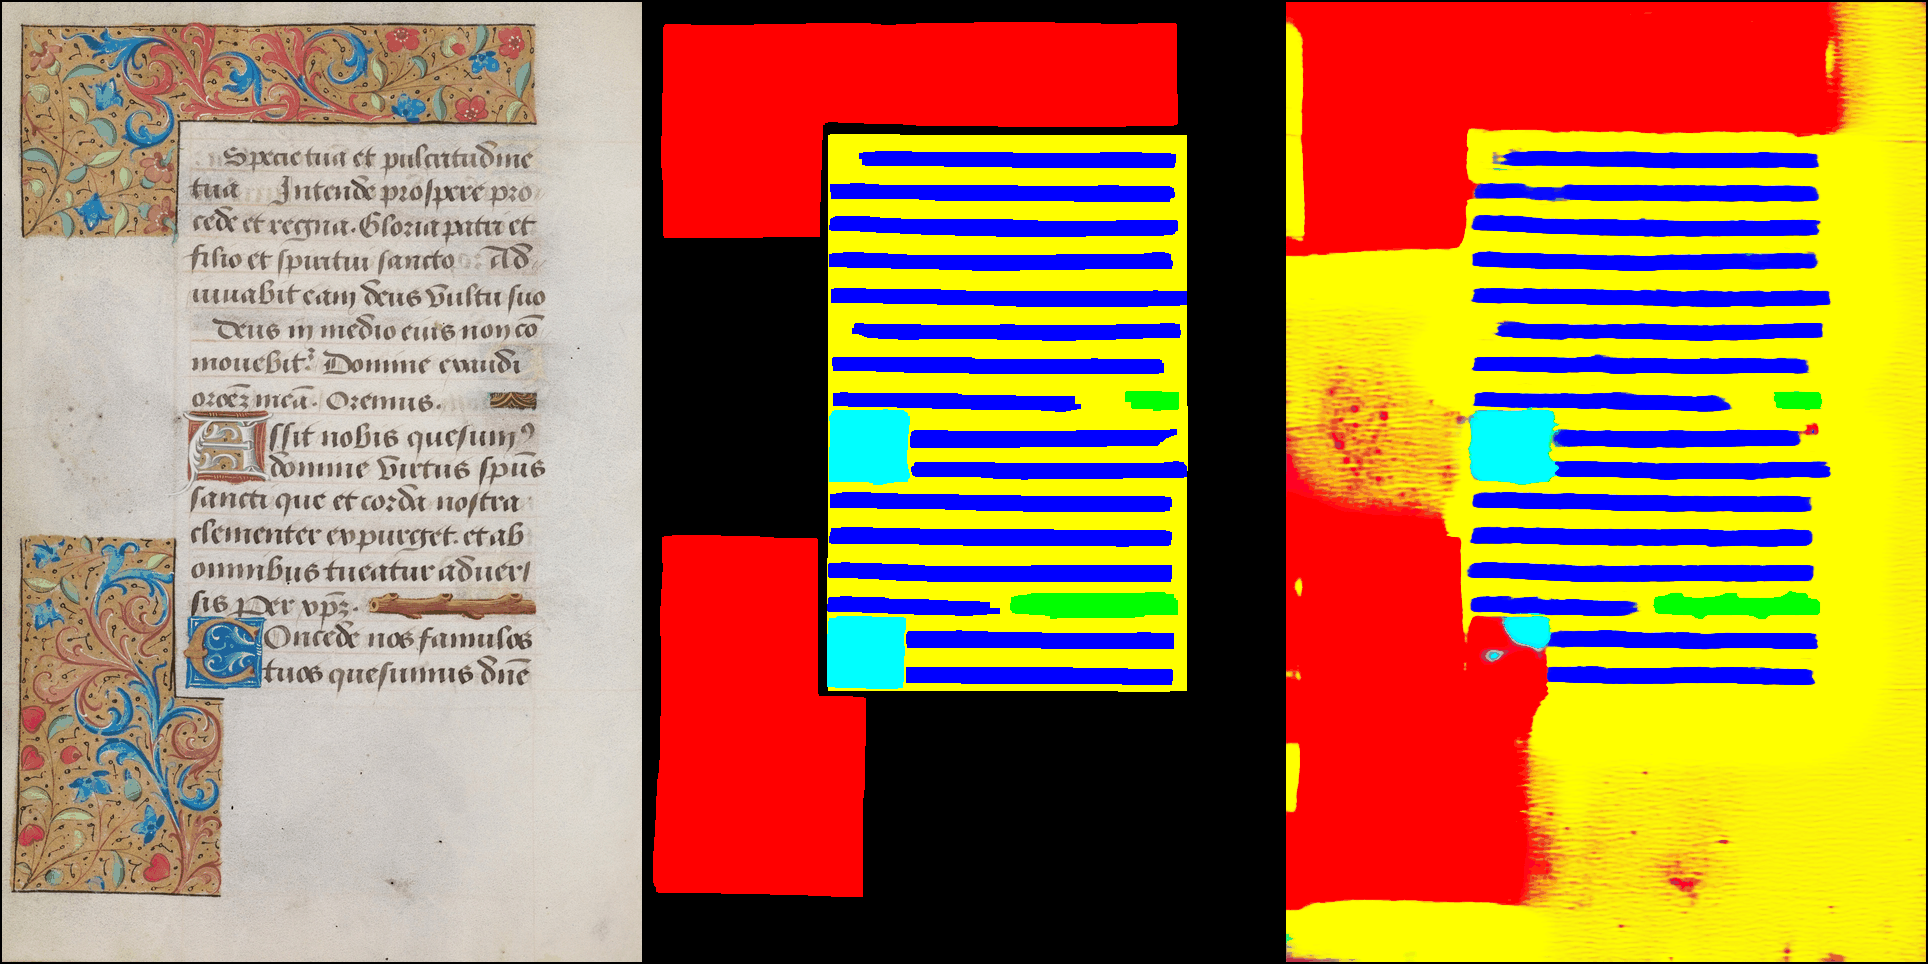 Specie tua et pulcritudine
tua Intende prospere pro
cede et regna. Gloria patri et
filio et spiritui sancto Ad
iuuabit eam deus vultu suo
Deus in medio eius non cō
mouebit᷑ Domine exaudi
orōēz meā. Oremus.
Assit nobis quesum⁹
domine virtus spūs
sancti que et corda nostra
clementer expurget. et ab
omnibus tueatur aduer/
sis Per xp̄z.
Concede nos famulos
tuos quesumus dn̄e